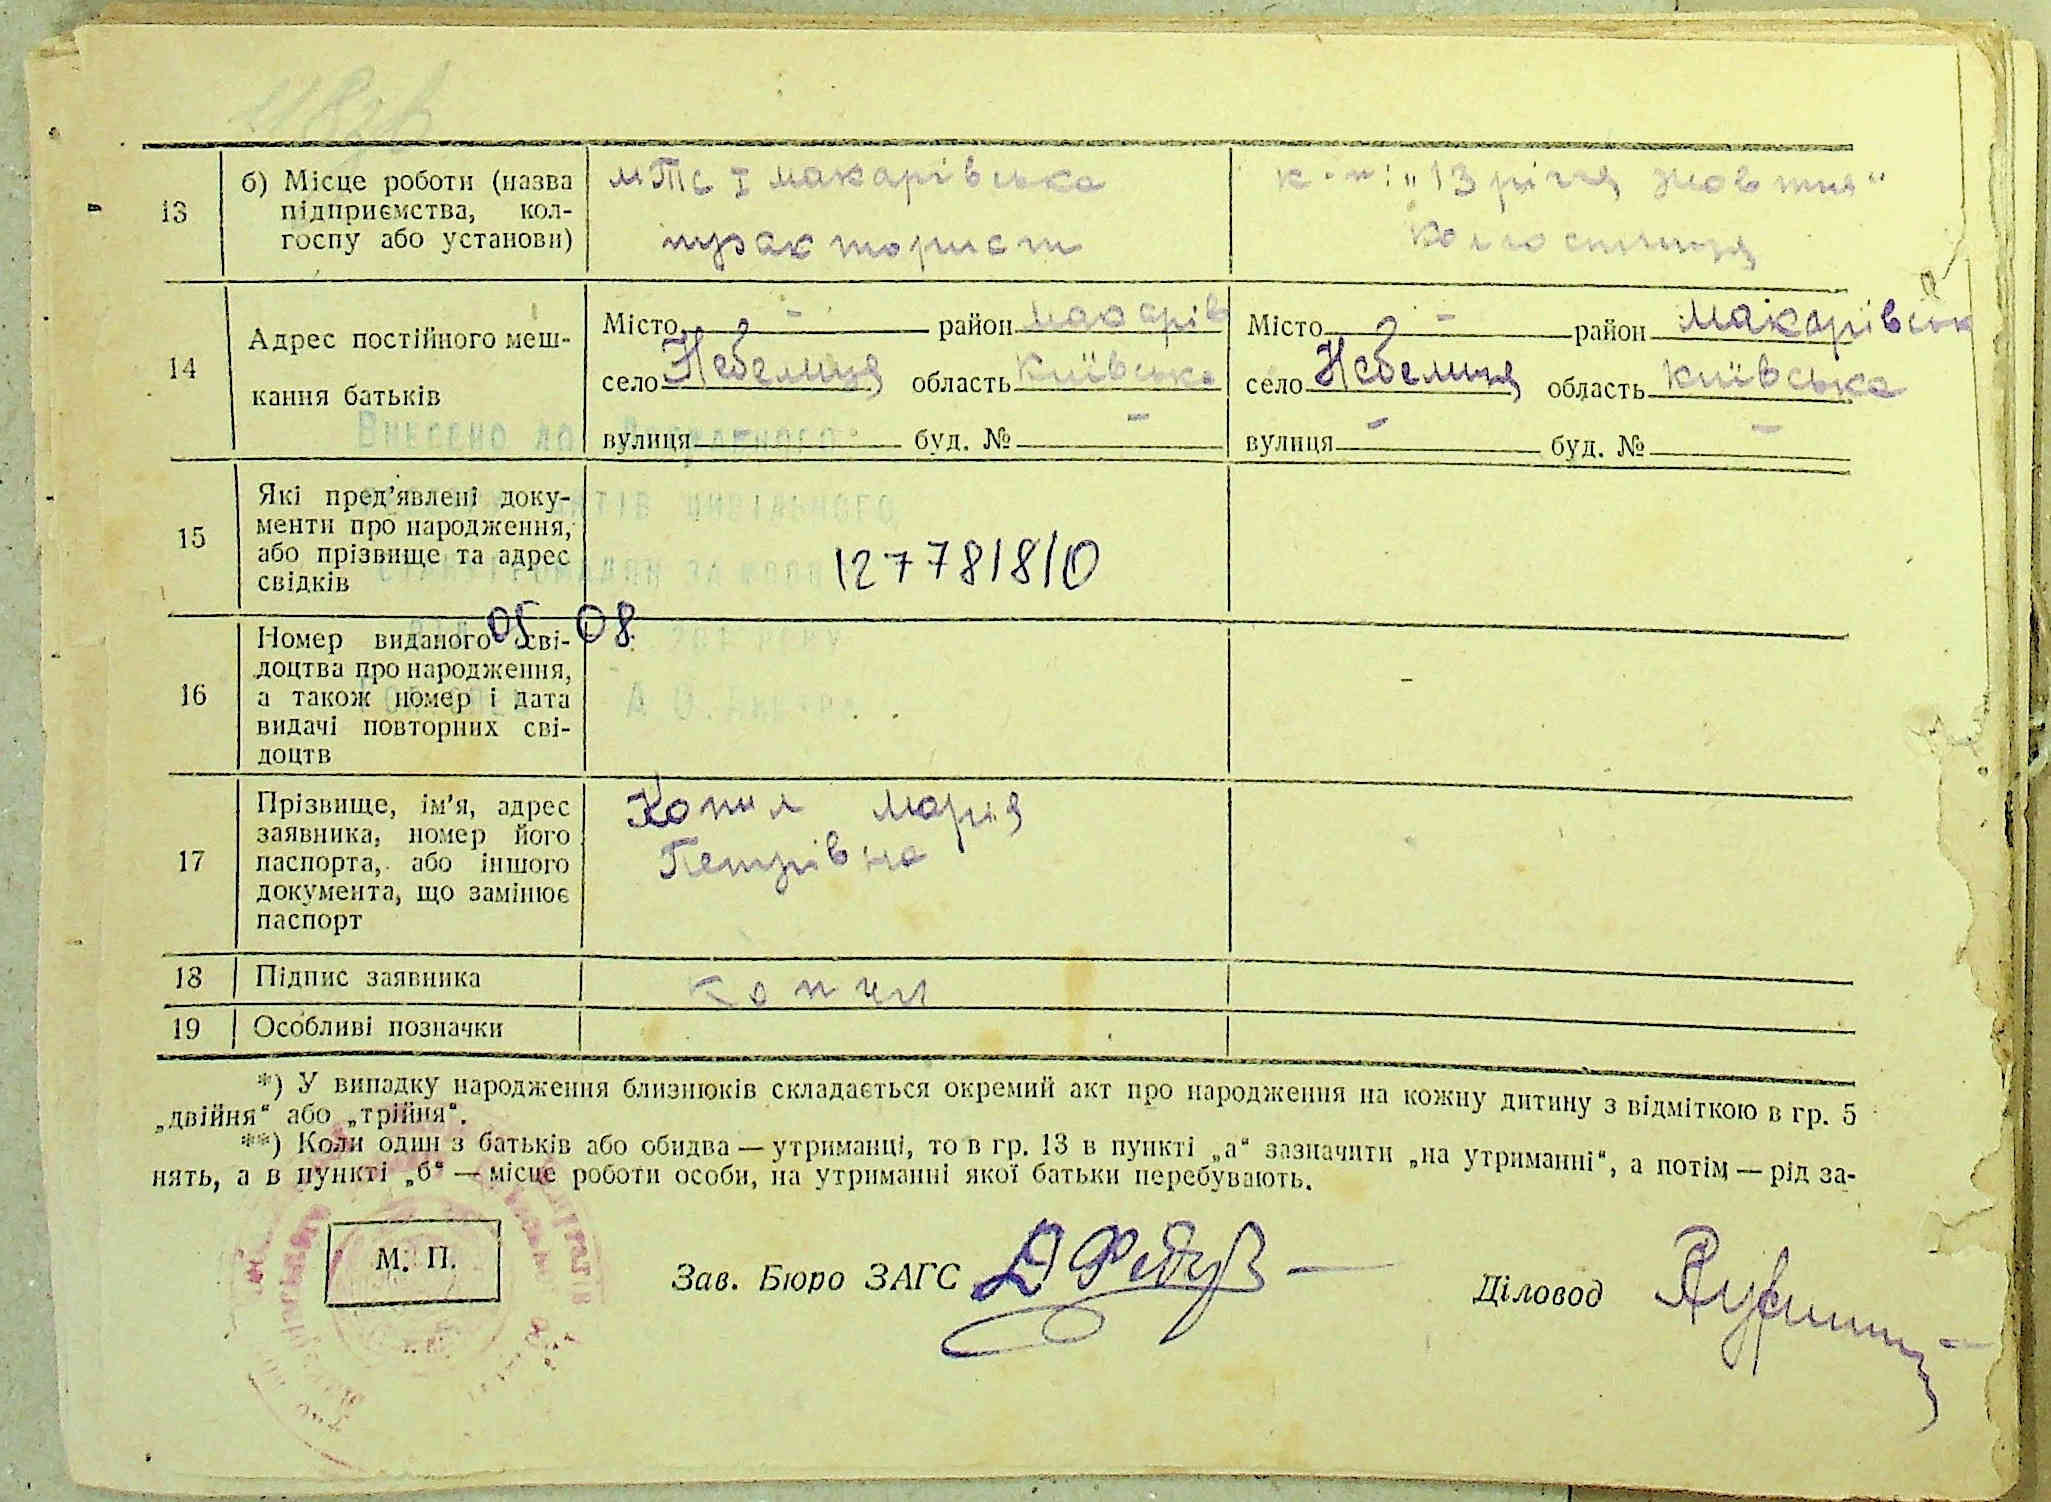 13 б) Місце роботи (назва підприємства, колгоспу або установи)
МТС І Макарівська
тракторист
к-п: „13 річчя Жовтня“
колгоспниця
14 Адрес постійного мешкання батьків
Місто - район Макарів
село Небелиця область Київська
вулиця - буд. № -
Місто - район Макарівськ
село Небелиця область Київська
вулиця - буд. № -
Внесено до Державного
актів цивільного
15 Які пред’явлені документи про народження, або прізвище та адрес свідків
127781810
05 08
16 Номер виданого свідоцтва про народження, а також номер і дата видачі повторних свідоцтв
-
17 Прізвище, ім’я, адрес заявника, номер його паспорта, або іншого документа, що замінює паспорт
Копил Марія
Петрівна
18 Підпис заявника
Копил
19 Особливі позначки
*) У випадку народження близнюків складається окремий акт про народження на кожну дитину з відміткою в гр. 5
„двійня“ або „трійня“.
**) Коли один з батьків або обидва — утриманці, то в гр. 13 в пункті „а“ зазначити „на утриманні“, а потім — рід за-
нять, а в пункті „б“ — місце роботи особи, на утриманні якої батьки перебувають.
М. П.
Зав. Бюро ЗАГС
Діловод